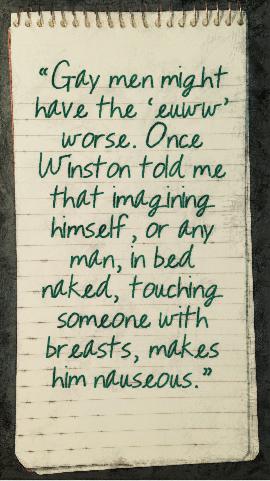 “Gay men might
have the ‘euww’
worse. Once
Winston told me
that imagining
himself, or any
man, in bed
naked, touching
someone with
breasts, makes
him nauseous.”